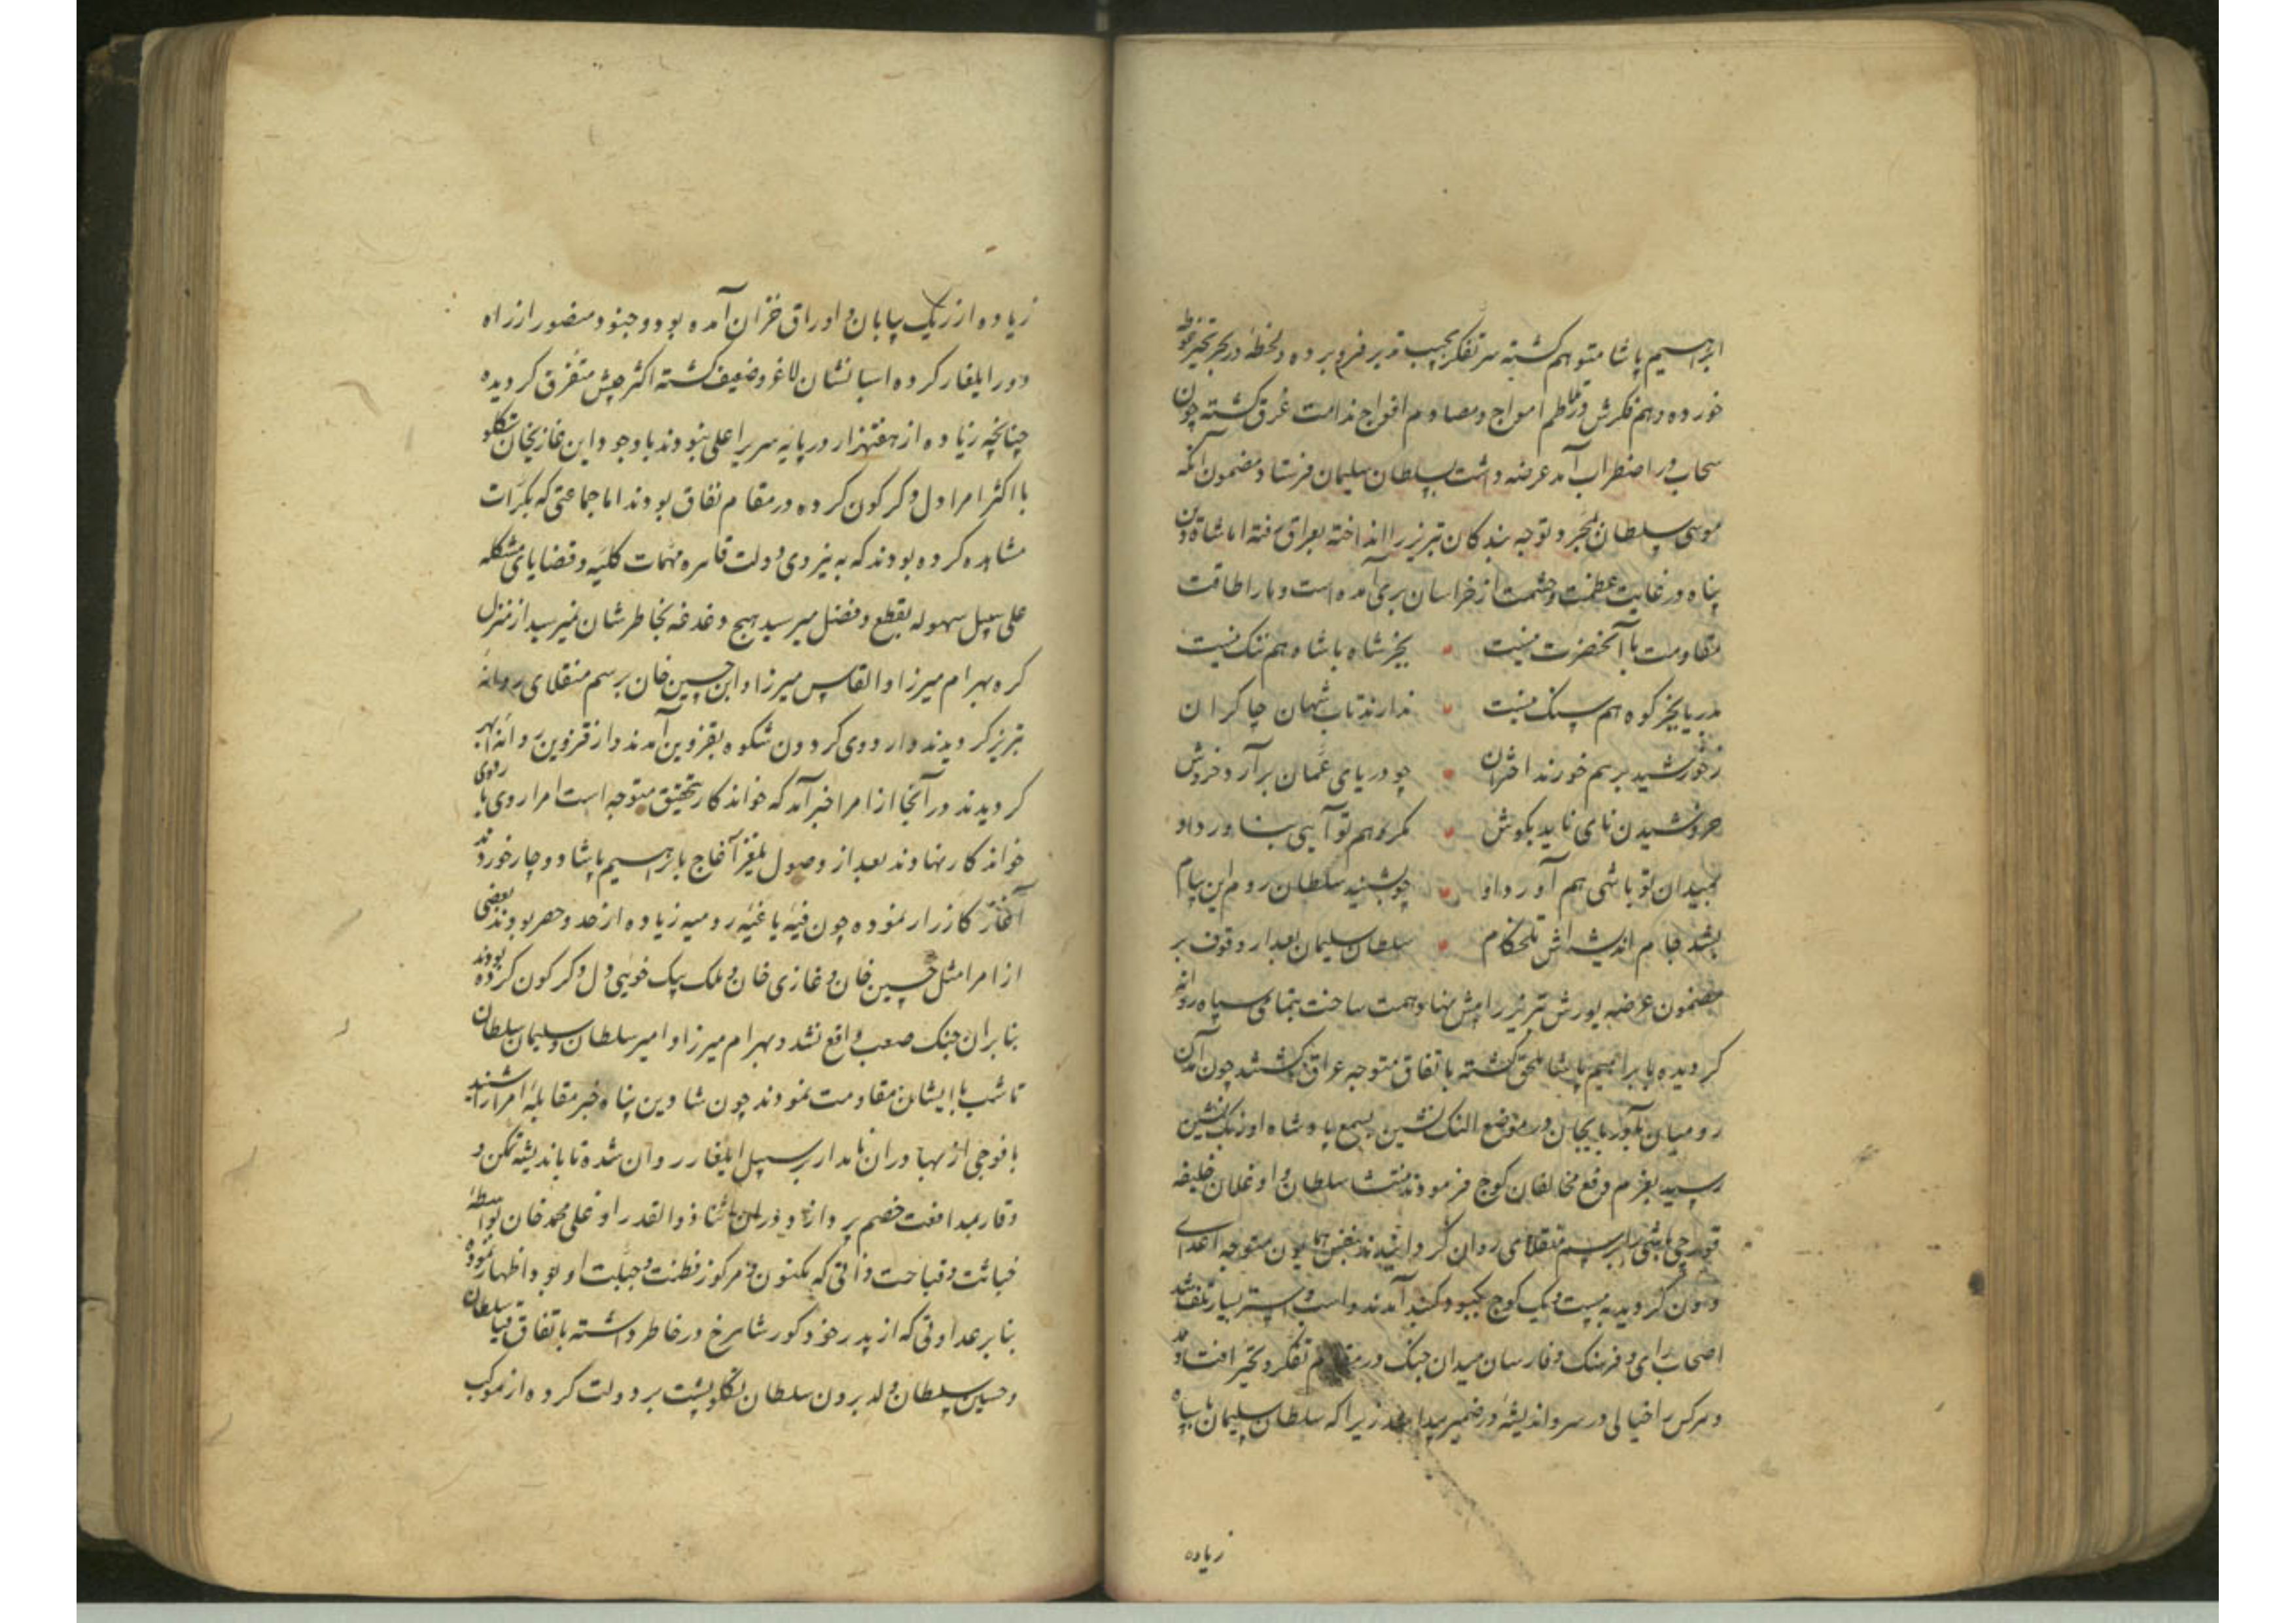 ابراهیم پاشا متوهم کشته سر تفکر بجیب تدبیر فرو برده و لخظه در بحر تحیر غوطه
خورده و هم فکرش در تلاطم امواج و مصادم افواج ندامت غرق کشته چون
سحاب در اضطراب آمد عرضه داشت بسلطان سلیمان فرستاد مضمون آنکه
موسی سلطان بمجرد توجه بندکان تبریز را انداخته بعراق رفته اما شاه دین
پناه در غایت عظمت و حشمت از خراسان بری آمده است و ما را طاقت
مقاومت با آنحضرت نیست • بجز شاه با شاه هم تنک نیست
بدریا بجز کوه هم سنک نیست • ندارند تاب شهان چاکران
ز خورشید بر هم خورند اختران • چو دریای عمان برآرد خروش
خروشیدن نای ناید بکوش • مکر هم تو آیی بناورد او
بمیدان تو باشی هم آورد او • چو بشنید سلطان روم این پیام
بشد جام اندیشه اش تلخکام • سلطان سلیمان بعد از وقوف بر
مضمون عرضه یورش تبریز را پیش نهاد همت ساخت بتمامی سپاه روانه
کردیده بابراهیم پاشا ملحق کشته باتفاق متوجه عراق کشتند چون آمدن
رومیان بآذربایجان در موضع النک نشین بسمع پادشاه اوزبک نشین
رسید بعزم دفع مخالفان کوچ فرمودند منتشا سلطان و اوغلان خلیفه
قورچی باشی را برسم منقلای روان کردانیدند بنفس همایون متوجه اعدای
دون کردید به بیست و یک کوچ بکبود کنبد آمدند و اسب و استر بسیار تلف شد
اصحاب رای و فرهنک و فارسان میدان جنک در مقام تفکر و تحیر افتادند
و هر کس را خیالی در سر و اندیشه در ضمیر پیدا شد زیرا که سلطان سلیمان با سپاه
زیاده
زیاده از ریک بیابان و اوراق خزان آمده بود و جنود منصور از راه
دور ایلغار کرده اسبانشان لاغر و ضعیف کشته اکثر جیش متفرق کردیده
چنانچه زیاده از هفتهزار در پایه سریر اعلی نبودند باوجود این غازیخان تکلو
با اکثر امرا دل دکرکون کرده در مقام نفاق بودند اما جماعتی که بکرات
مشاهده کرده بودند که به نیروی دولت قاهره مهمات کلیه و قضایای مشکله
علی سبیل سهوله بقطع و فصل میرسید هیچ دغدغه بخاطرشان نمیرسید از منزل
کره بهرام میرزا و القاس میرزا و ابن حسین خان برسم منقلای روانه
تبریز کردیدند و اردوی کردون شکوه بقزوین آمدند و از قزوین روانه ابهر
کردیدند در آنجا از امرا خبر آمد که خواندکار بتحقیق متوجه است امرا روی باردوی
خواندکار نهادند بعد از وصول بمغز آغاج بابراهیم پاشا دوچار خوردند
آغاز کارزار نموده چون فیه یاغیه رومیه زیاده از حد و حصر بودند بعضی
از امرا مثل حسین خان و غازی خان و ملک بیک خویی دل دکرکون کرده بودند
بنابران جنک صعب واقع نشد و بهرام میرزا و امیر سلطان و سلیمان سلطان
تا شب با ایشان مقاومت نمودند چون شاه دین پناه خبر مقابله امرا را شنید
با فوجی از بهادران نامدار بر سبیل ایلغار روان شده تا باندیشه تمکن و
وقار بمدافعت خصم پردازد و در آن اثنا ذوالقدر اوغلی محمد خان بواسطه
خباثت و قباحت ذاتی که مکنون و مرکوز فطنت و جبلت او بود اظهار نموده
بنابر عداوتی که از پدر خود کور شاهرخ در خاطر داشته باتفاق قیا سلطان
و حسین سلطان ولد برون سلطان تکلو پشت بر دولت کرده از موکب